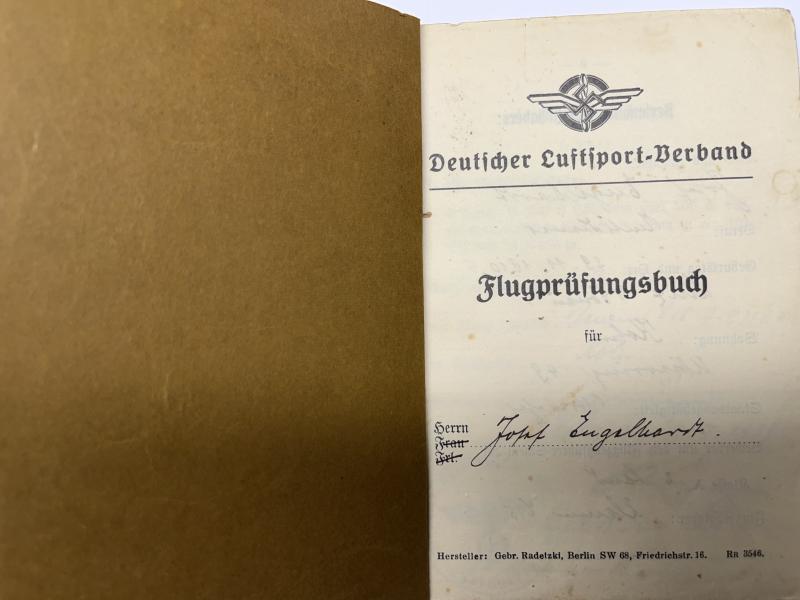 Deutscher Luftsport-Verband
Flugprüfungsbuch
für
Herrn
Frau
Frl.
Josef Engelhardt.
Hersteller: Gebr. Radetzki, Berlin SW 68, Friedrichstr. 16. RR 3546.